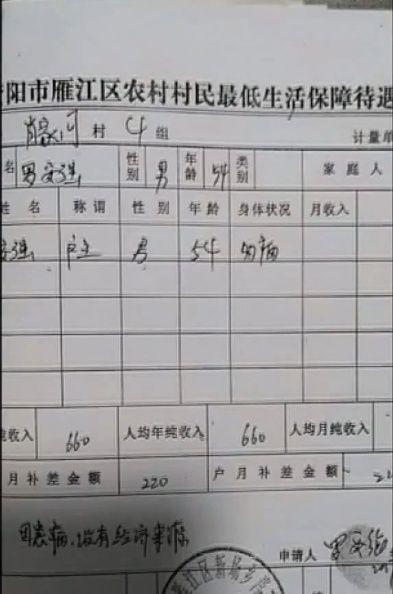 阳市雁江区农村村民最低生活保障待遇
肖家河 村 4 组 计量单
名 罗安强 性别 男 年龄 54 类别 家庭人
姓名 称谓 性别 年龄 身体状况 月收入
安强 户主 男 54 为病
纯收入 660 人均年纯收入 660 人均月纯收入
月补差金额 220 户月补差金额
因患病,没有经济来源
申请人 罗安强
江区新场乡